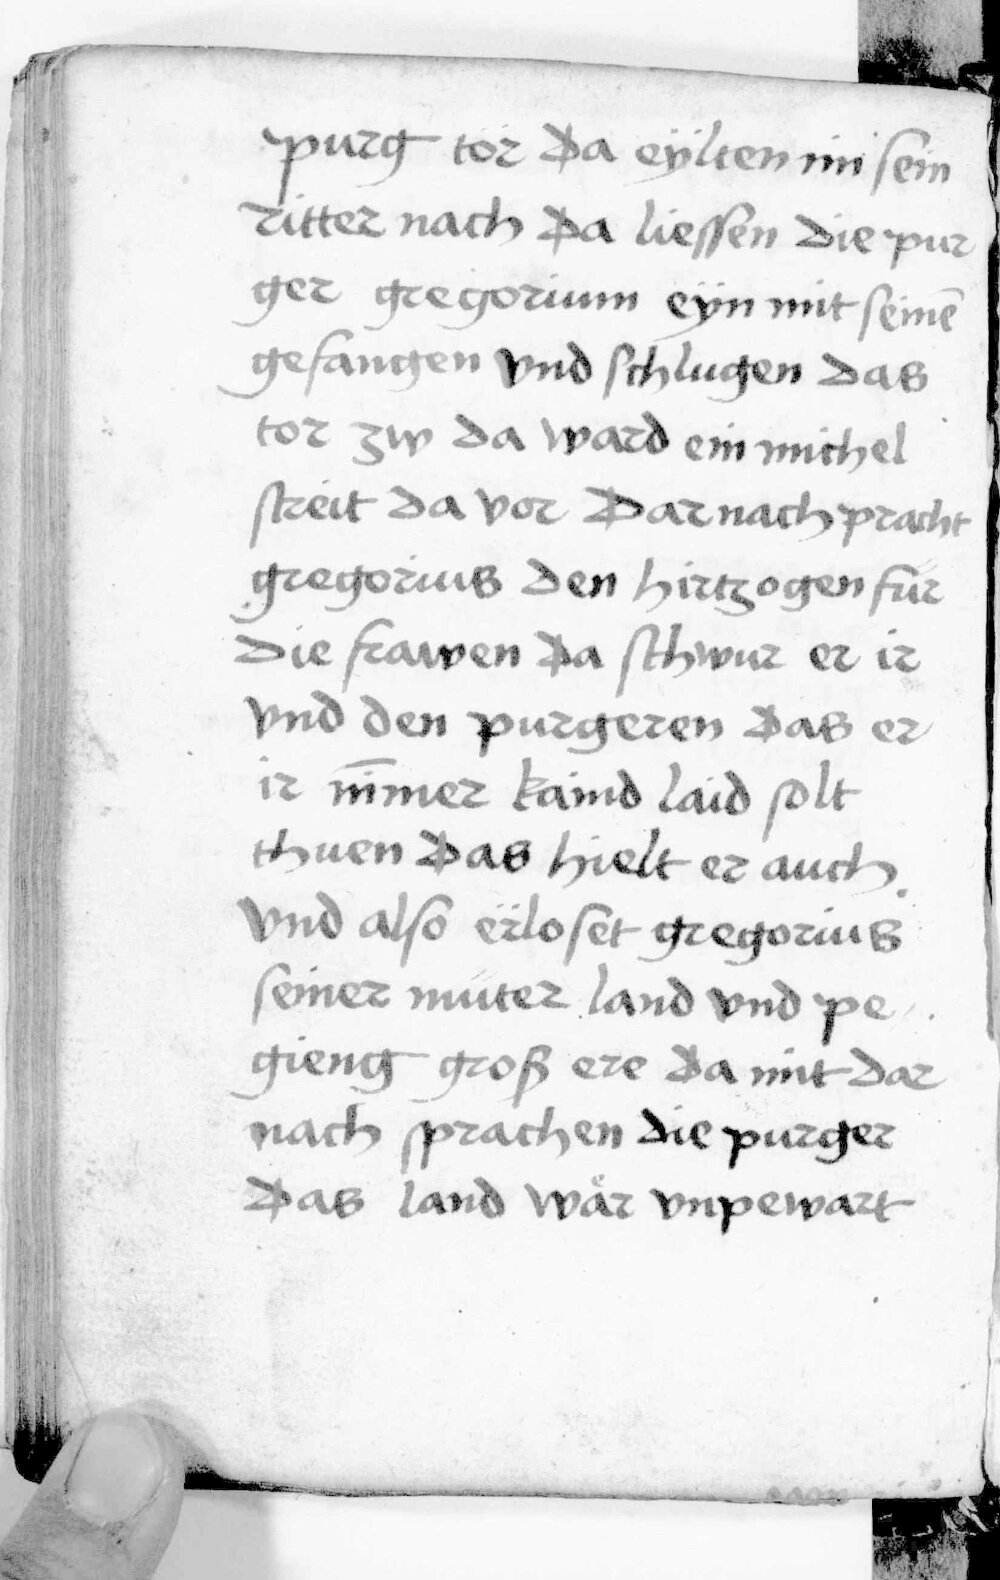 purg tor Da eÿlten im sein
ritter nach Da liessen die pur
ger gregorium eÿn mit seinē
gefangen vnd schlugen das
tor zw da ward ein michel
streit da vor Dar nach pracht
gregorius den hirtzogen fur
die frawen Da schwur er ir
vnd den purgeren Das er
ir nīmer kaind laid solt
thuen Das hielt er auch
vnd also erloset gregorius
seiner muter land vnd pe
gieng groß ere Da mit dar
nach sprachen die purger
Das land wår vnpewart